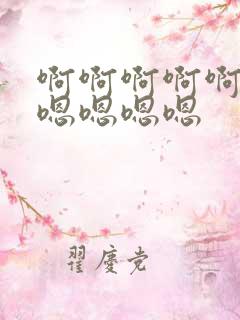 啊啊啊啊啊
嗯嗯嗯嗯
翟庆党